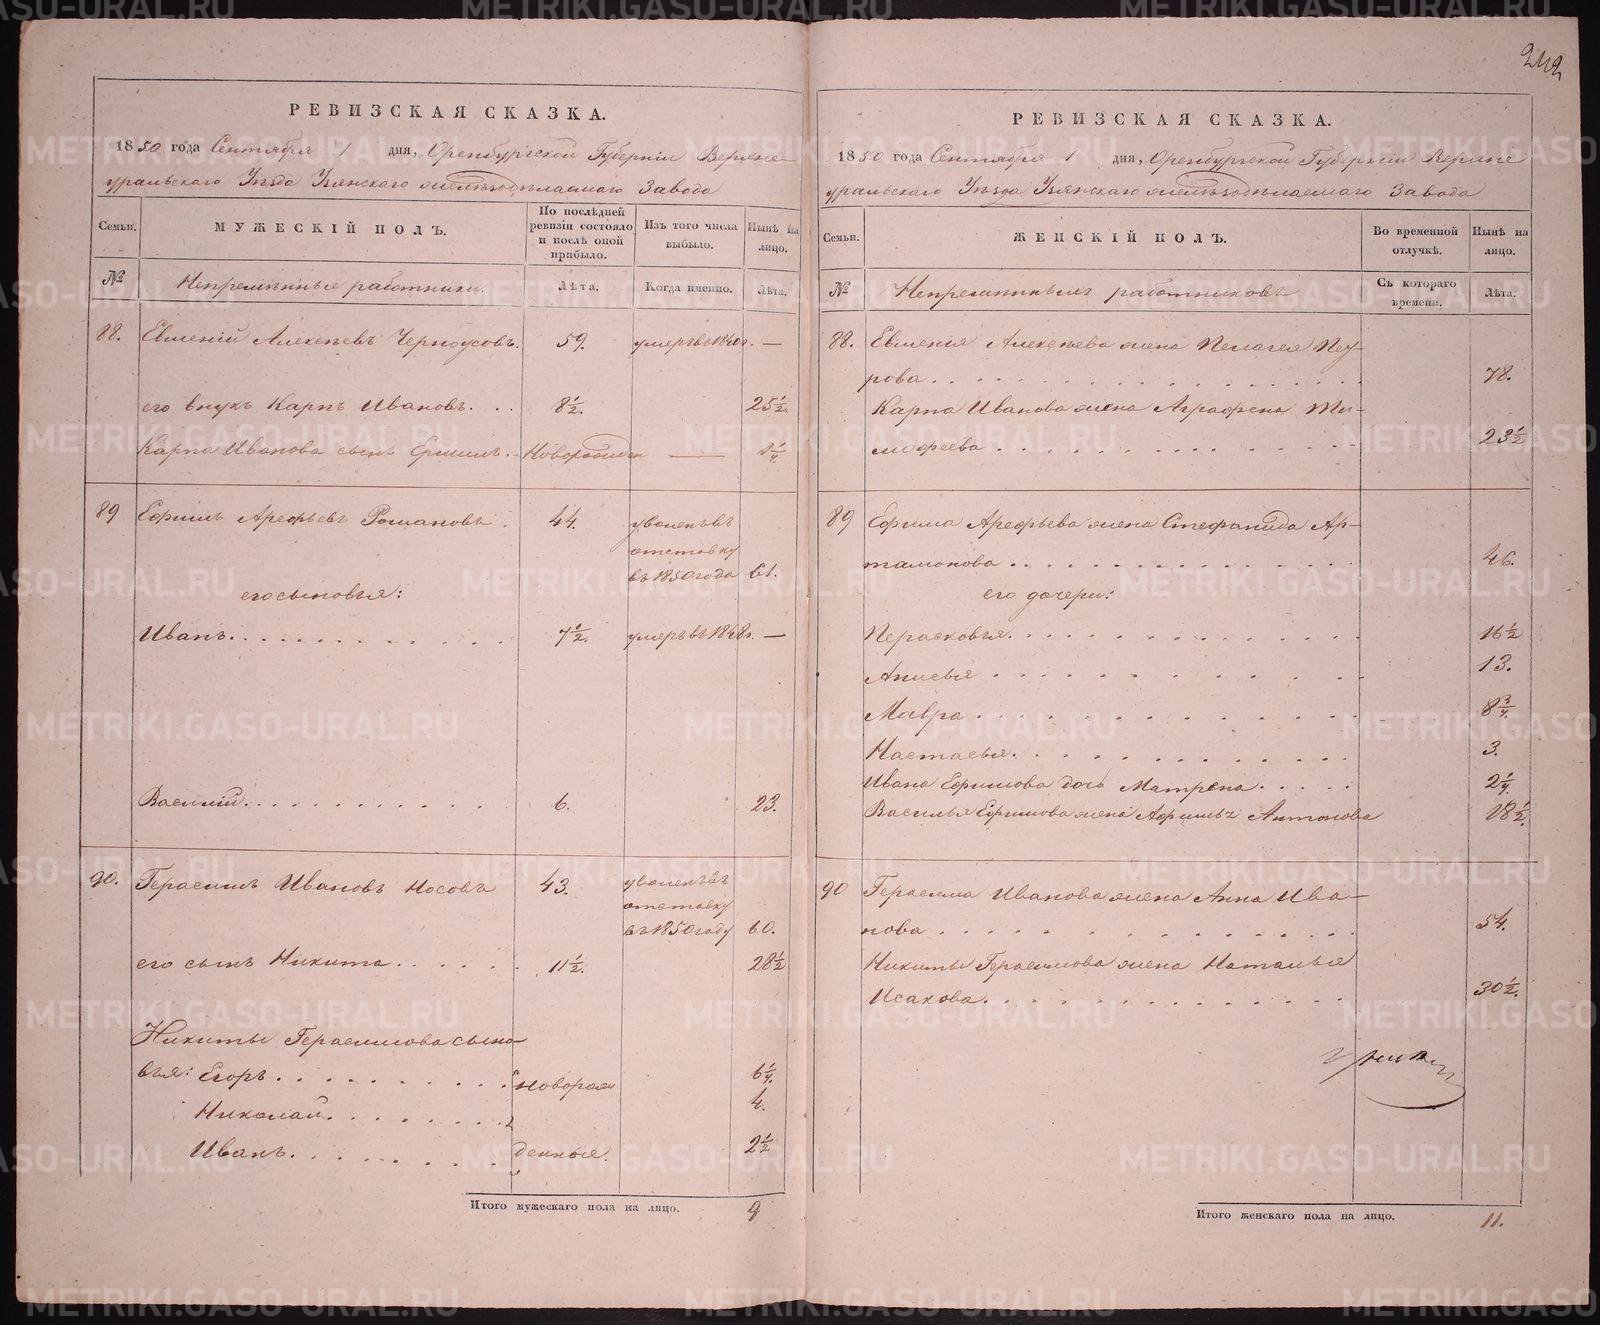 242
РЕВИЗСКАЯ СКАЗКА.
1850 года Сентября 1 дня, Оренбургской Губерніи Верхне-
уральскаго Уѣзда Узянскаго желѣзодѣлаемаго Завода
Семьи.
МУЖЕСКІЙ ПОЛЪ.
По послѣдней
ревизіи состояло
и послѣ оной
прибыло.
Изъ того числа
выбыло.
Нынѣ на
лицо.
№
Непремѣнные работники.
Лѣта.
Когда именно.
Лѣта.
88. Евменій Алексѣевъ Черноусовъ. 59. умеръ въ 1840 г. —
его внукъ Карпъ Ивановъ. . . 8½. 25½.
Карпа Иванова сынъ Ефимъ. . Новорожден —
89 Ефимъ Арефьевъ Романовъ. 44. уволенъ въ
отставку
въ 1850 года 61.
его сыновья:
Иванъ. 7½. умеръ въ 1848 г. —
Василій. 6. 23.
90. Герасимъ Ивановъ Носовъ 43. уволенъ въ
отставку
въ 1850 году 60.
его сынъ Никита. 11½. 28½
Никиты Герасимова сыно-
вья: Егоръ. новорож 6¼.
Николай. 4.
Иванъ. денные. 2½
Итого мужескаго пола на лицо. 9
РЕВИЗСКАЯ СКАЗКА.
1850 года Сентября 1 дня, Оренбургской Губерніи Верхне
уральскаго Уѣзда Узянскаго желѣзодѣлаемаго Завода
Семьи.
ЖЕНСКІЙ ПОЛЪ.
Во временной
отлучкѣ.
Нынѣ на
лицо.
№
Непремѣнныхъ работниковъ
Съ котораго
времени.
Лѣта.
88. Евменія Алексѣева жена Пелагея Пет-
рова. 78.
Карпа Иванова жена Аграфена Ти-
мофеева. 23½
89 Ефима Арефьева жена Стефанида Ар-
тамонова. 46.
его дочери:
Перасковья. 16½
Анисья 13.
Мавра. 8¾.
Настасья. 3.
Ивана Ефимова дочь Матрена. 2¼.
Василья Ефимова жена Антонова 18½.
90 Герасима Иванова жена Анна Ива-
нова. 54.
Никиты Герасимова жена Наталья
Исакова. 30½.
Итого женскаго пола на лицо. 11.
METRIKI.GASO-URAL.RU